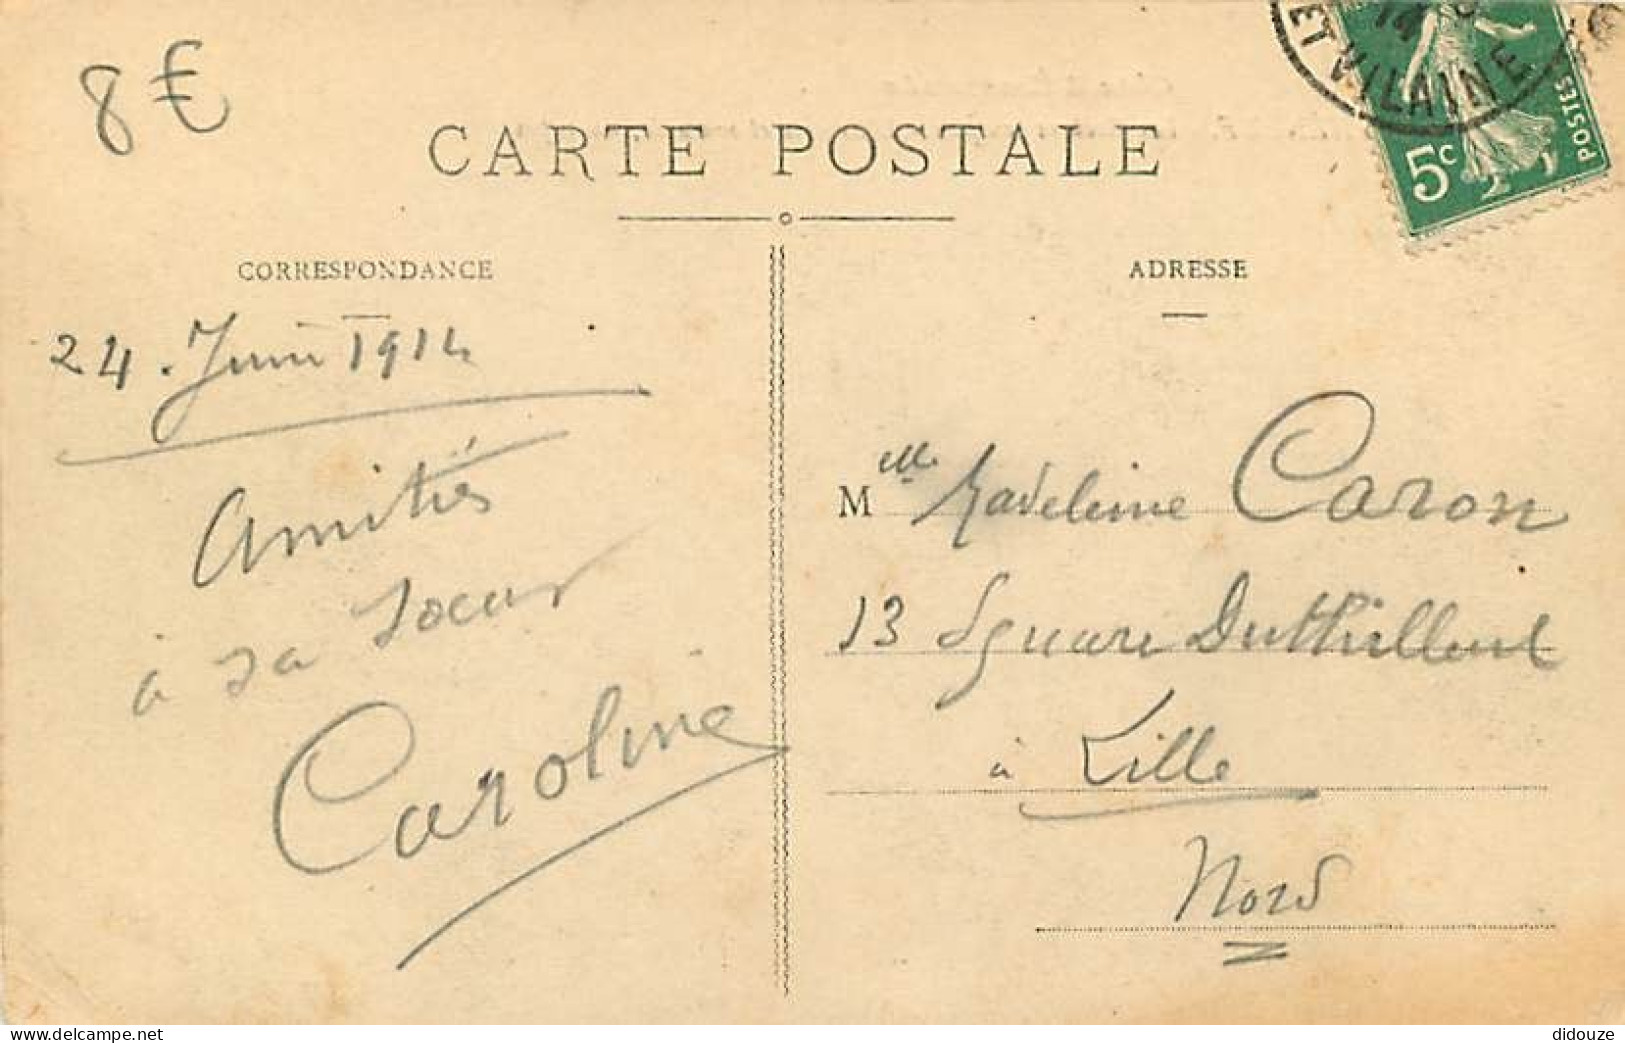 8€
CARTE POSTALE
ET VILAINE
14
5c
POSTES
CORRESPONDANCE
24. Juin 1914
Amitiés
à sa soeur
Caroline
ADRESSE
Melle Madeleine Caron
13 Square Duthilleul
à Lille
Nord
www.delcampe.net
didouze